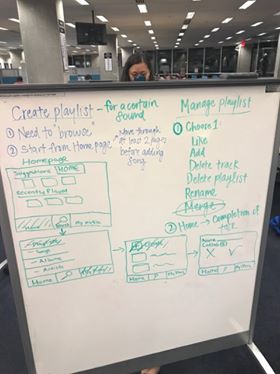 Create playlist - for a certain
sound
① Need to browse
② Start from Homepage
* Move through
at least 2 pages
before adding
song
Homepage
Suggestions HOME
Recently Played
Search My music
Songs
- Albums
- Artists
Home
Home
Manage playlist
① Choose 1
Like
Add
Delete track
Delete playlist
Rename
Merge
② Home → Completion of
task
Name
X ✓
Home